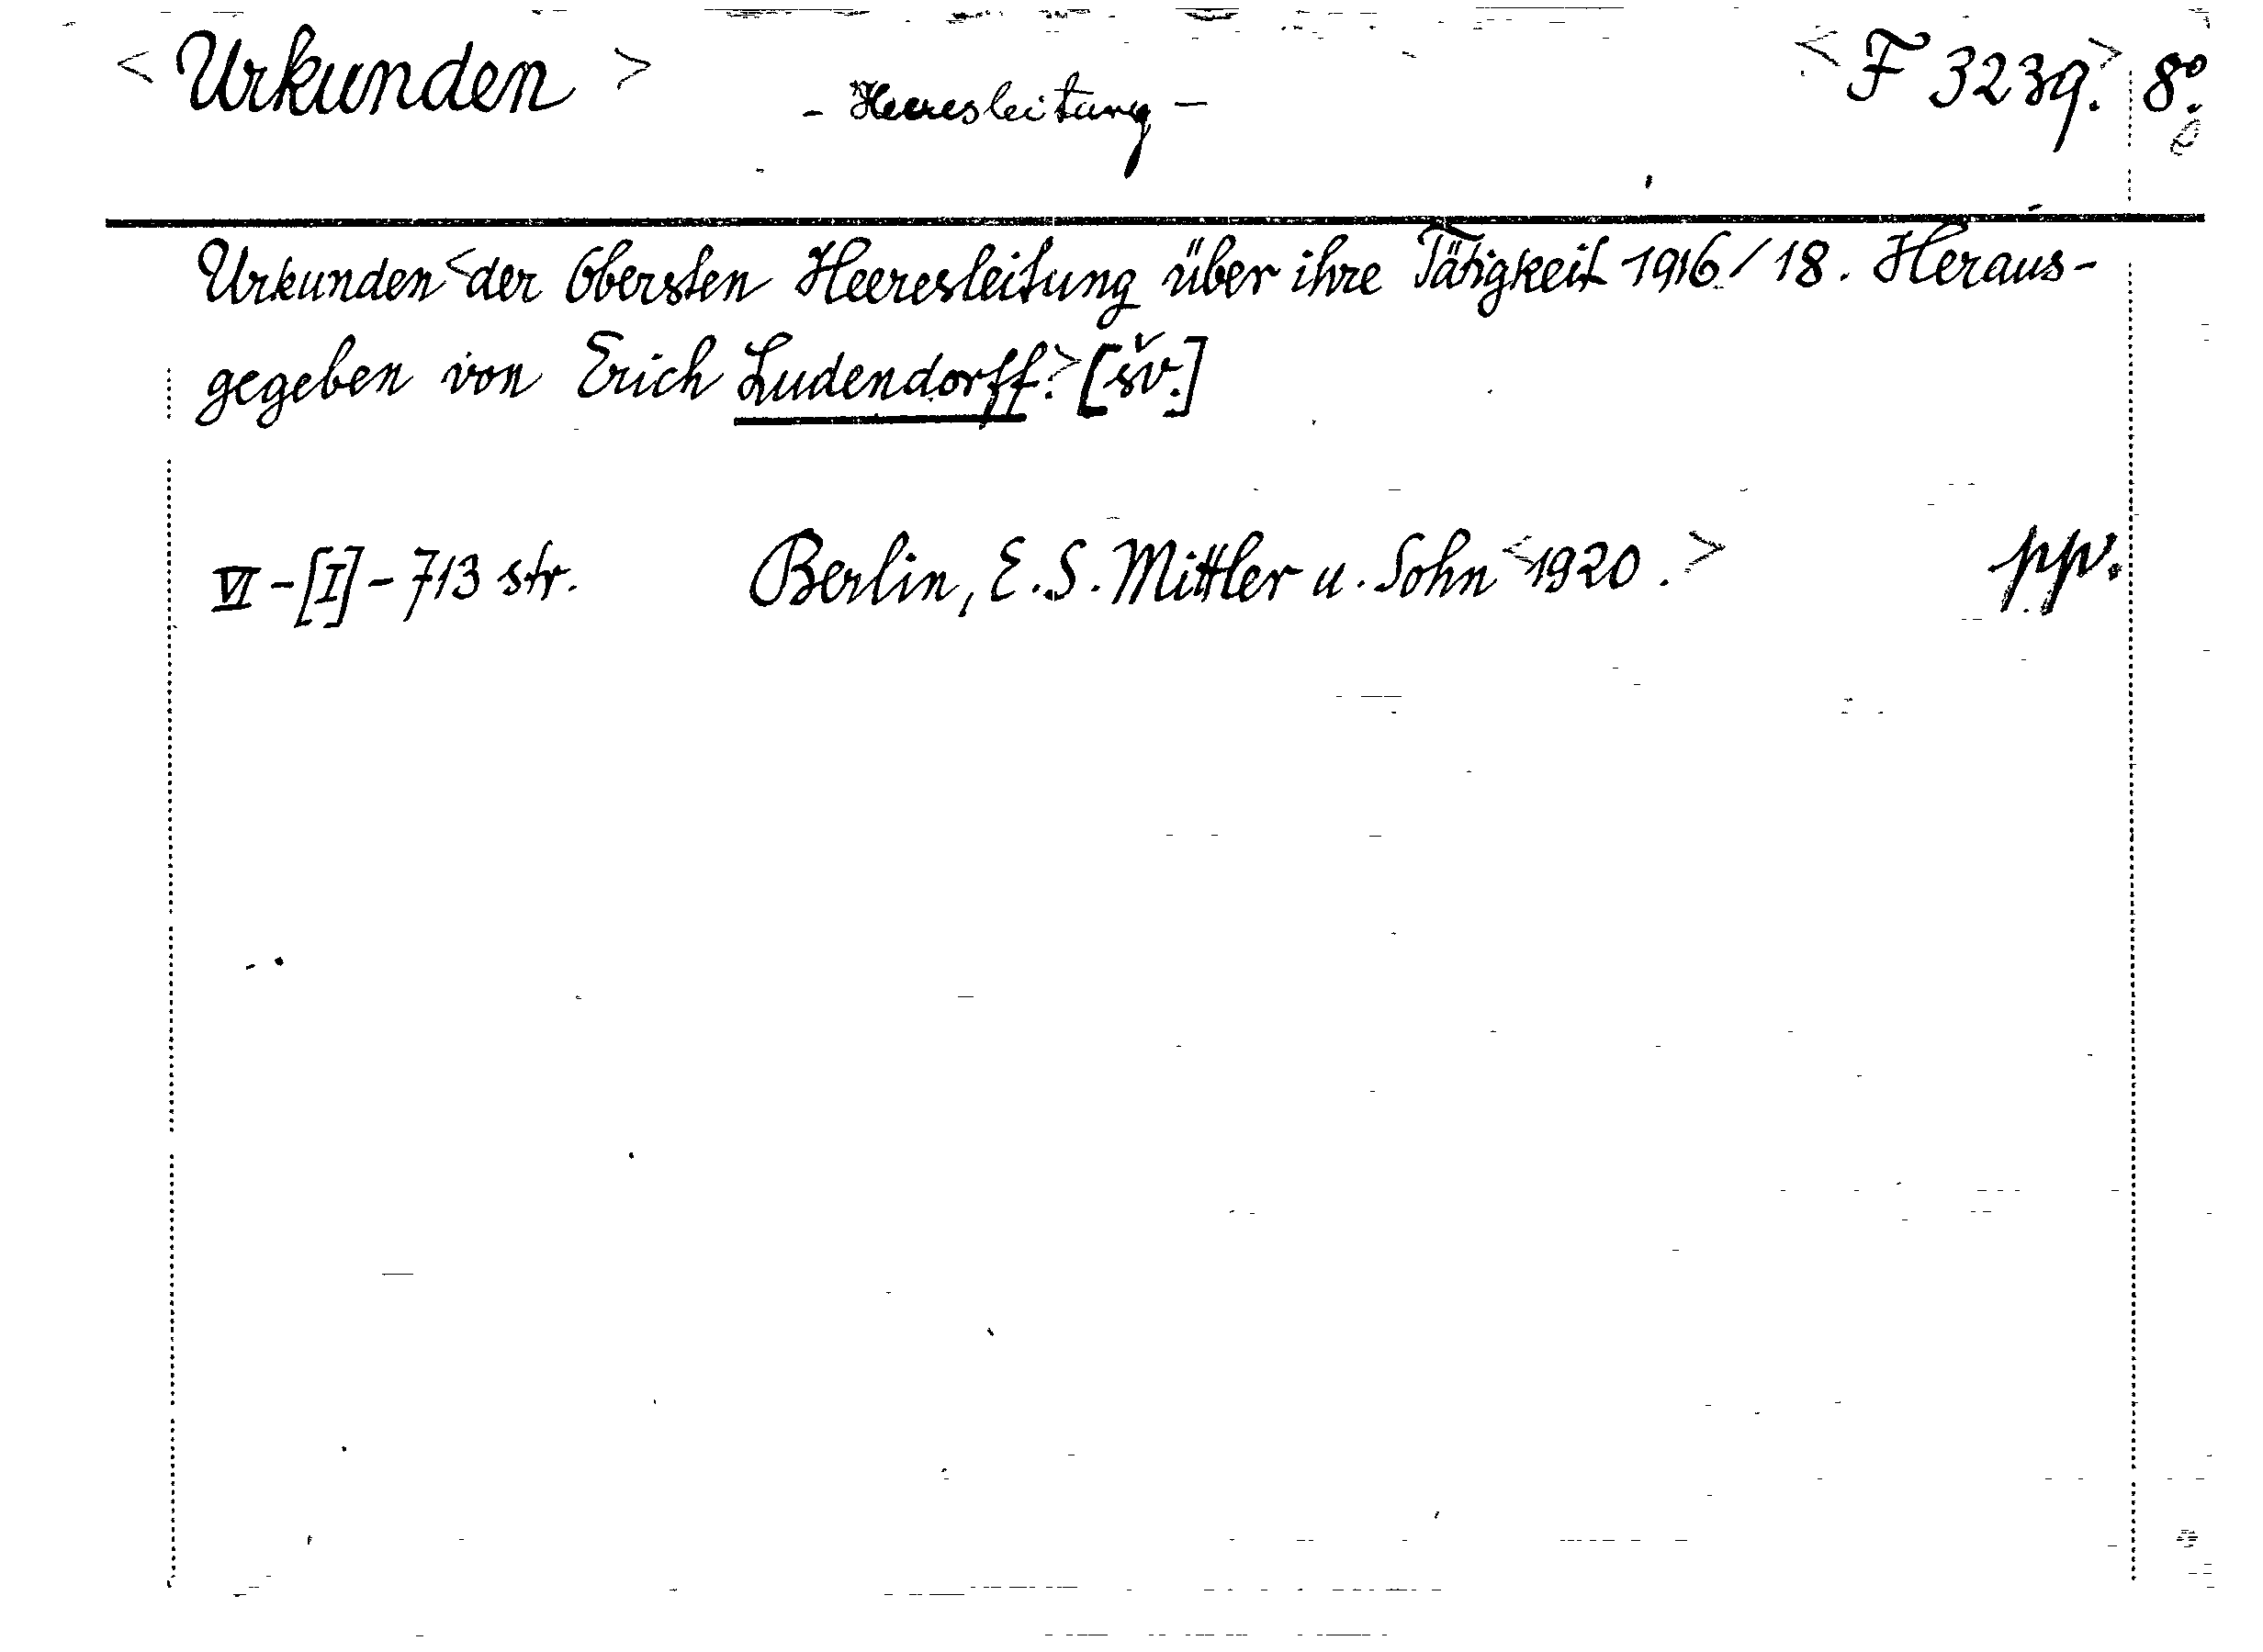 < Urkunden > - Heeresleitung - < F 3239. > 8°.
Urkunden < der Obersten Heeresleitung über ihre Tätigkeit 1916/18. Heraus-
gegeben von Erich Ludendorff. > [šv.]
VI - [I] - 713 str. Berlin, E. S. Mittler u. Sohn < 1920. > pp.